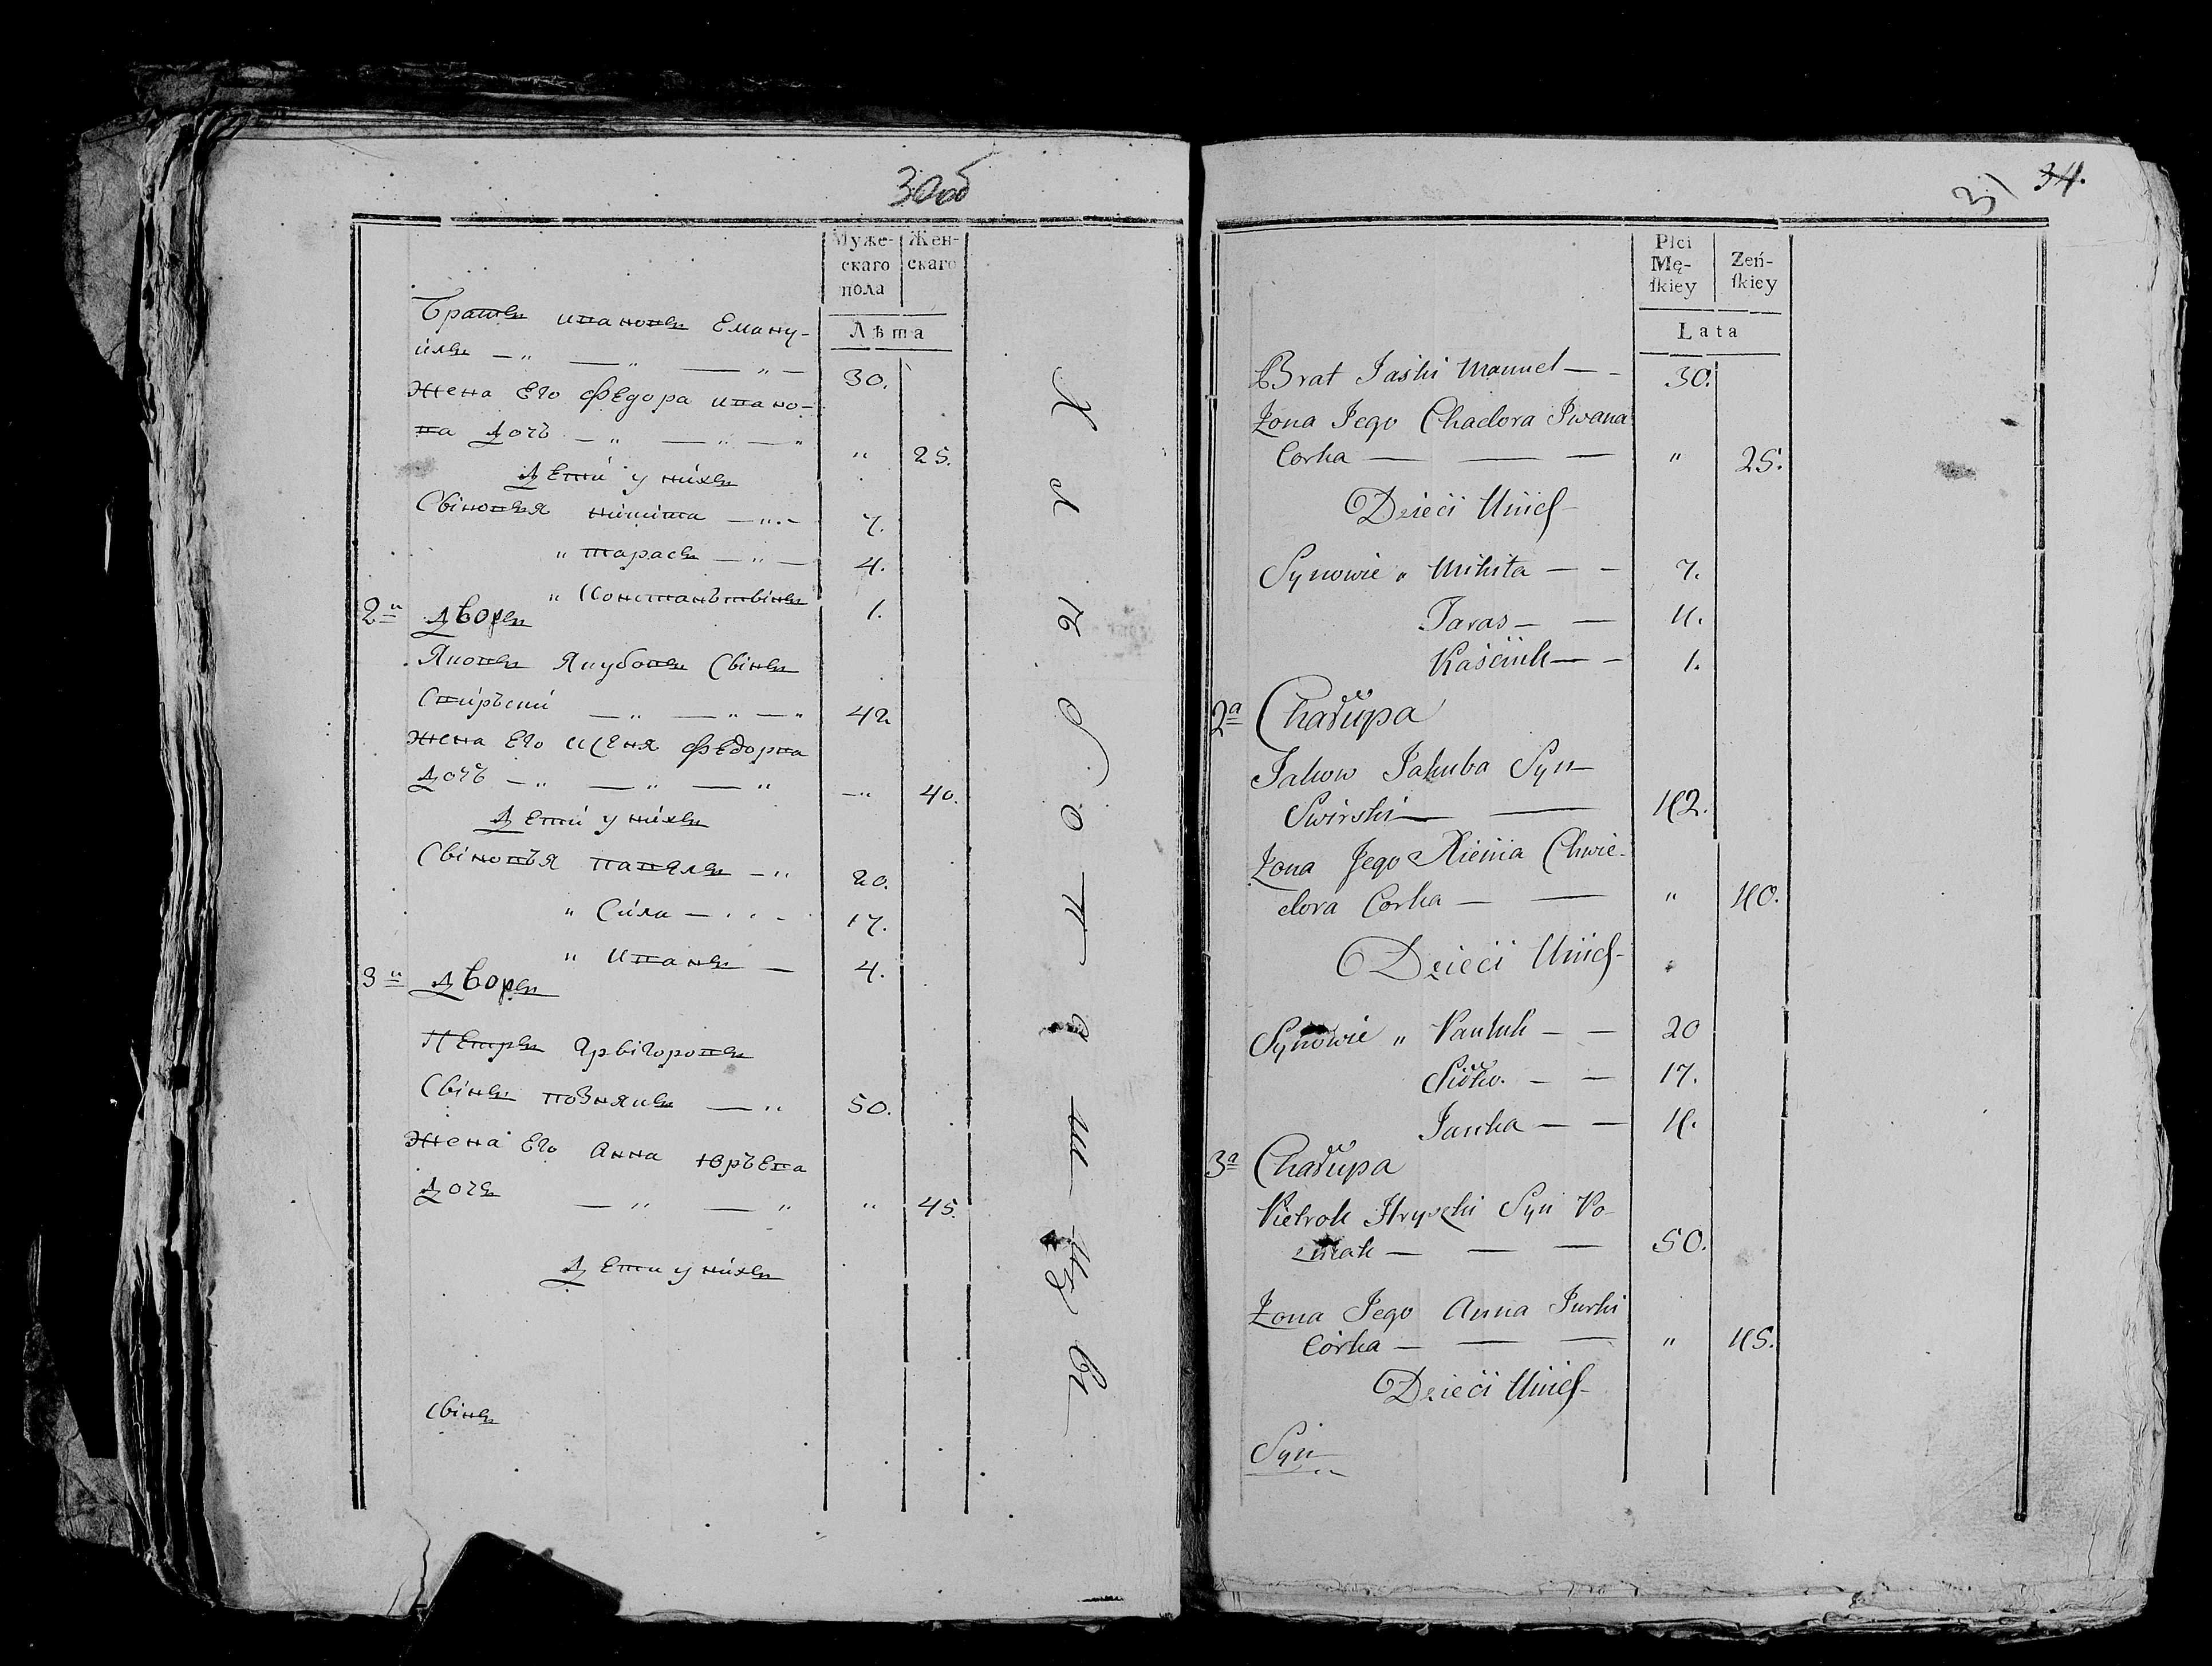 30об
Муже-
скаго
пола
Жен-
скаго
Лѣта
Братъ ивановъ Еману-
илъ — " — " — " — 30.
Жена Его Федора ивано-
ва Дочъ — " — " — " " 25.
Дети у нихъ
Свіновья никита — " — 7.
" тарасъ — " — 4.
" Констанътвінъ 1.
2й Дворъ
Яковъ Якубовъ Свінъ
Свирьски — " — " — " 42
Жена Его Ксеня Федорва
Дочъ — " — " — " — " 40.
Дети у нихъ
Свіновъя павялъ — " 20.
" Сила — " — 17.
" иванъ — 4.
3й Дворъ
Петръ Грвігоровъ
Свінъ познякъ — " 50.
Жена Его Анна юръева
Дочъ — " — " " 45.
Дети у нихъ
Свінъ
31
34.
Płci
Mę-
ſkiey
Zeń-
ſkiey
Lata
Brat Jaśki Manuel — - 30.
Żona Jego Chadora Jwana
Corka — — — " 25.
Dzieci Unich
Synowie " Mikita — - 7.
Taras — — 4.
Kaściuk — - 1.
2a Chałupa
Jakow Jakuba Syn
Swirski — — 42.
Żona Jego Xienia Chwie-
dora Corka — — " 40.
Dzieci Unich
Synowie " Pauluk — — 20
Siłko. — — 17.
Janka — — 4.
3a Chałupa
Pietrok Hryszki Syn Po-
zniak — — — 50.
Żona Jego Anna Jurki
Córka — — — " 45.
Dzieci Unich
Syn